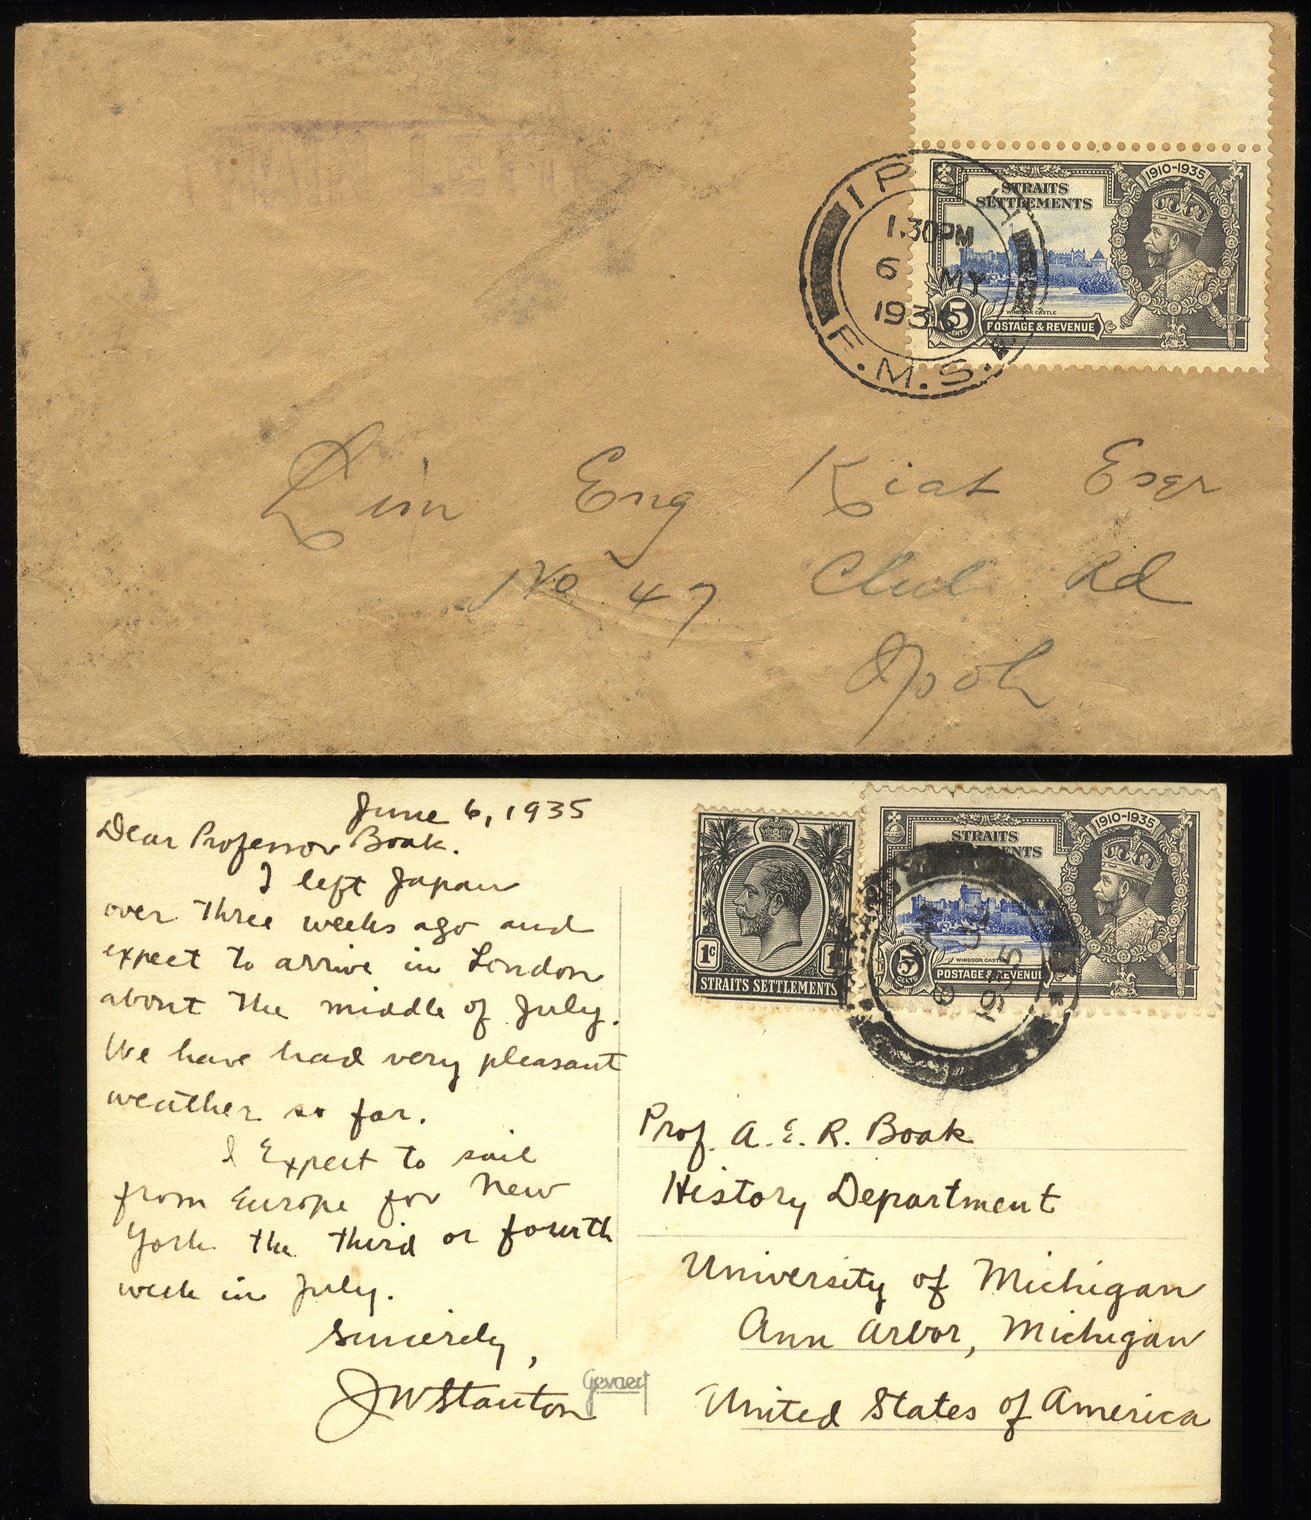 1910-1935
STRAITS
SETTLEMENTS
WINDSOR CASTLE
5
CENTS
POSTAGE & REVENUE
IPOH
1.30PM
6 MY
1935
F.M.S.
Lim Eng Kiat Esqr
No 47 Club Rd
Ipoh
June 6, 1935
Dear Professor Boak.
I left Japan
over three weeks ago and
expect to arrive in London
about the middle of July.
We have had very pleasant
weather so far.
I Expect to sail
from Europe for New
York the third or fourth
week in July.
Sincerely,
JWStanton
Gevaert
1c
STRAITS SETTLEMENTS
1910-1935
STRAITS
SETTLEMENTS
WINDSOR CASTLE
5
CENTS
POSTAGE & REVENUE
1935
Prof. A. E. R. Boak
History Department
University of Michigan
Ann Arbor, Michigan
United States of America